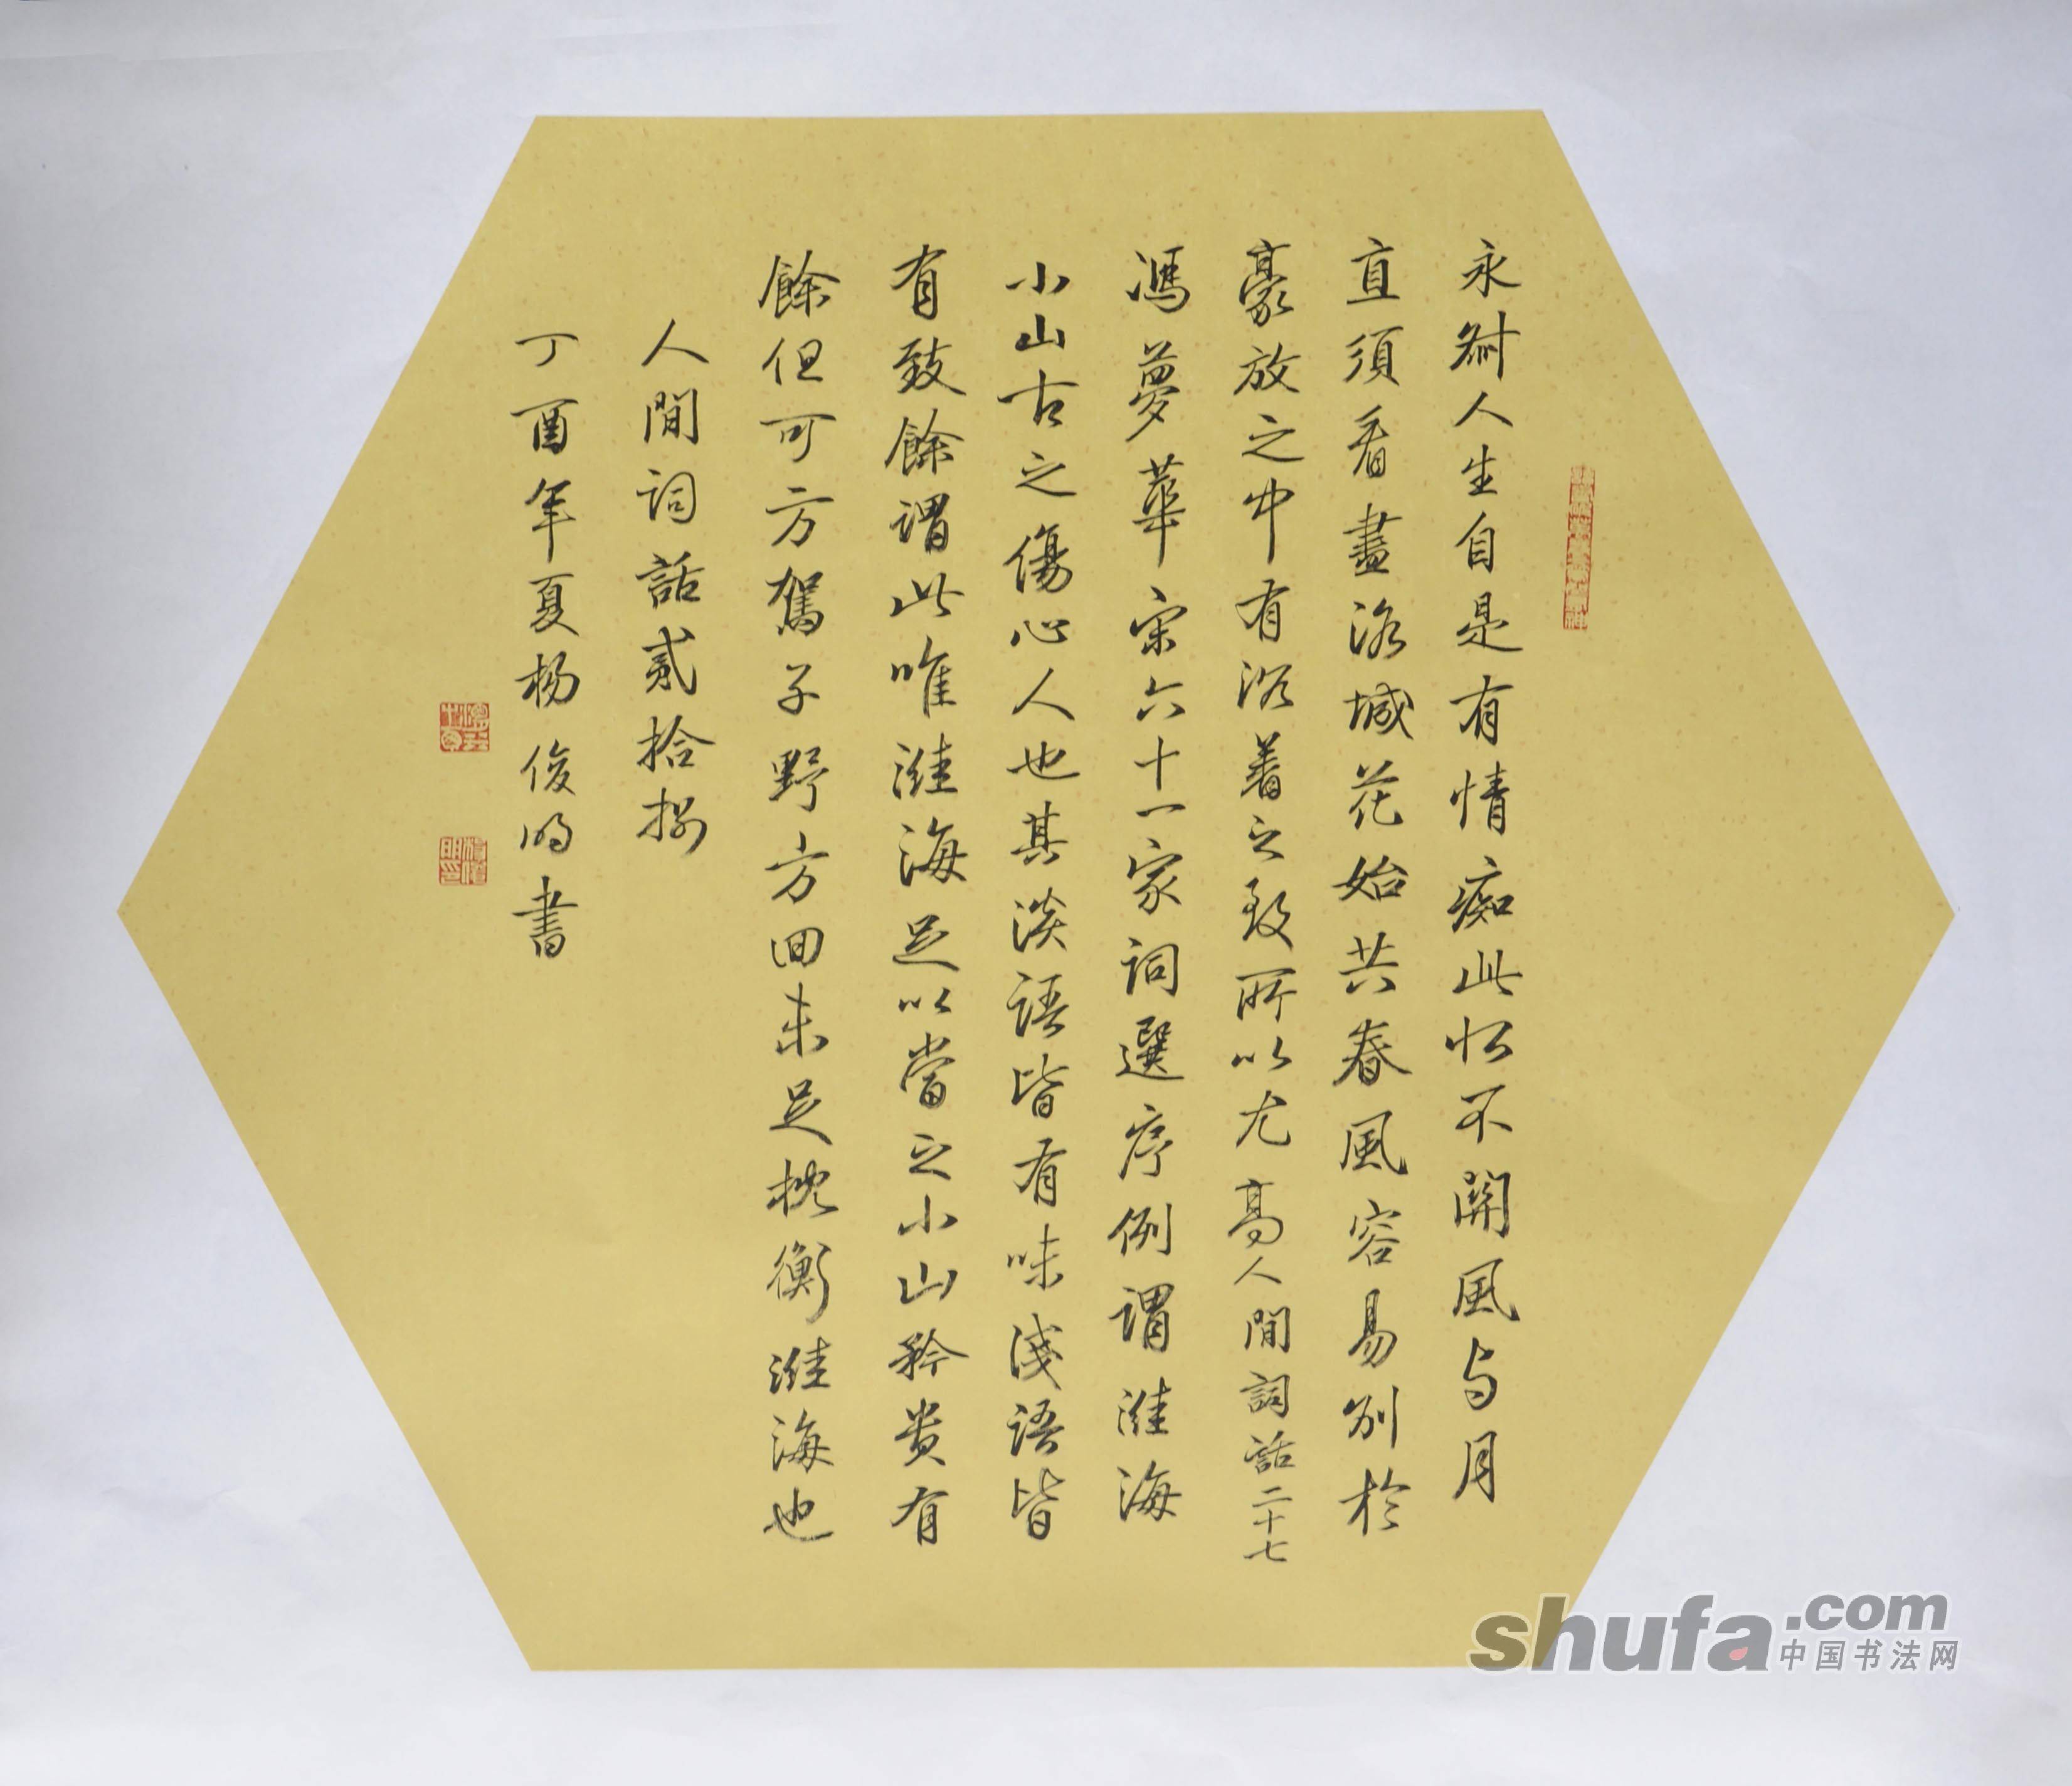 永叔人生自是有情痴此恨不關風与月
直須看盡洛城花始共春風容易別於
豪放之中有沉着之致所以尤高人間詞話二十七
馮夢華宋六十一家詞選序例謂淮海
小山古之傷心人也其淡語皆有味淺語皆
有致餘謂此唯淮海足以當之小山矜貴有
餘但可方駕子野方回未足抗衡淮海也
人間詞話貳拾捌
丁酉年夏楊俊明書
shufa.com
中国书法网